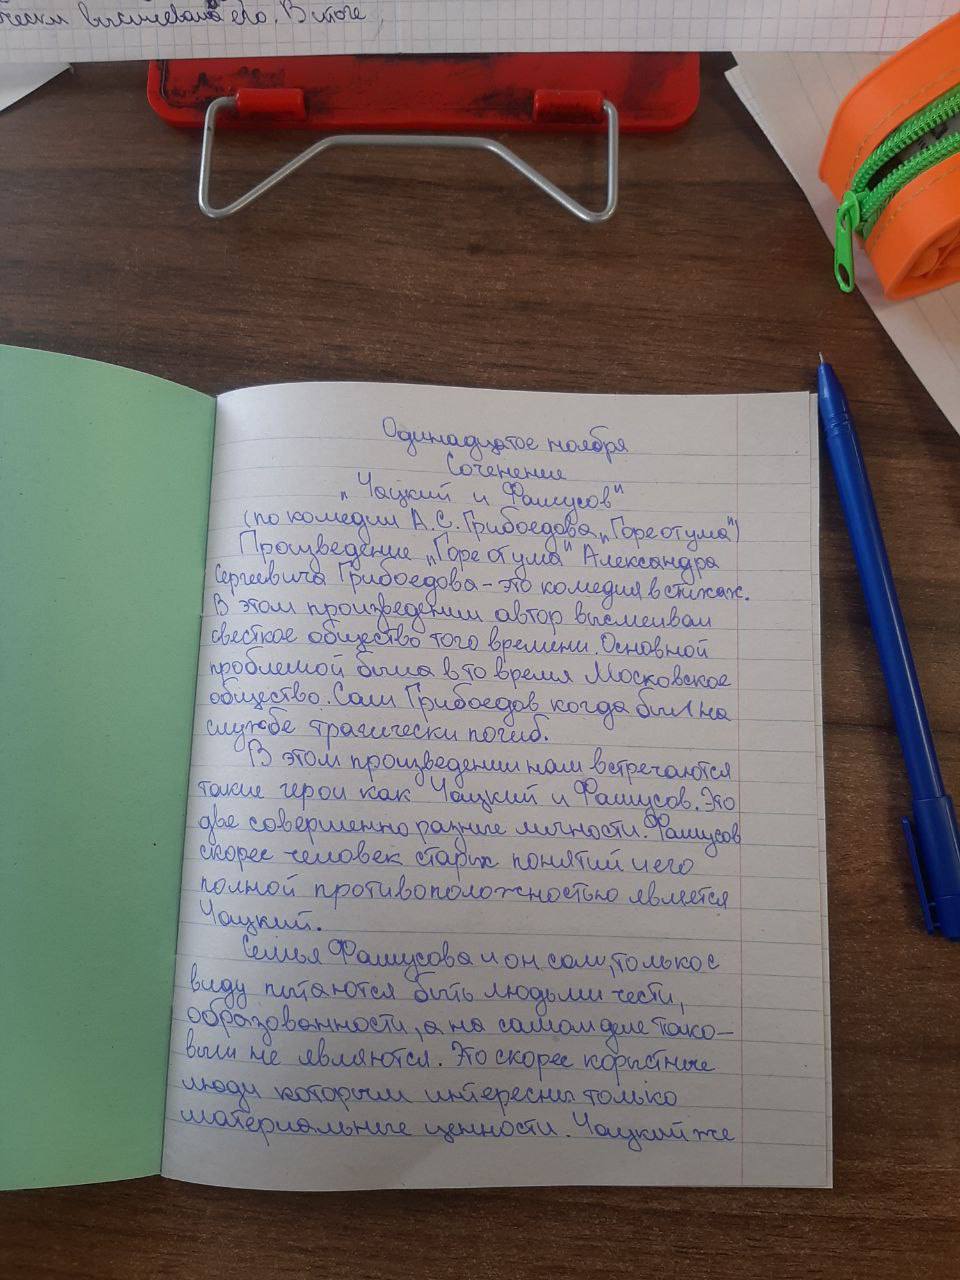 чески высмеивала его. В итоге
Одинадцатое ноября
Соченение
„Чацкий и Фамусов"
(по комедии А.С. Грибоедова „Горе от ума")
Произведение „Горе от ума" Александра
Сергеевича Грибоедова - это комедия в стихах.
В этом произведении автор высмеивал
светское общество того времени. Основной
проблемой была в то время Московское
общество. Сам Грибоедов когда был на
службе трагически погиб.
В этом произведении нам встречаются
такие герои как Чацкий и Фамусов. Это
две совершенно разные личности. Фамусов
скорее человек старых понятий и его
полной противоположностью является
Чацкий.
Семья Фамусова и он сам, только с
виду пытаются быть людьми чести,
образованности, а на самом деле тако-
выми не являются. Это скорее корыстные
люди которым интересны только
материальные ценности. Чацкий же